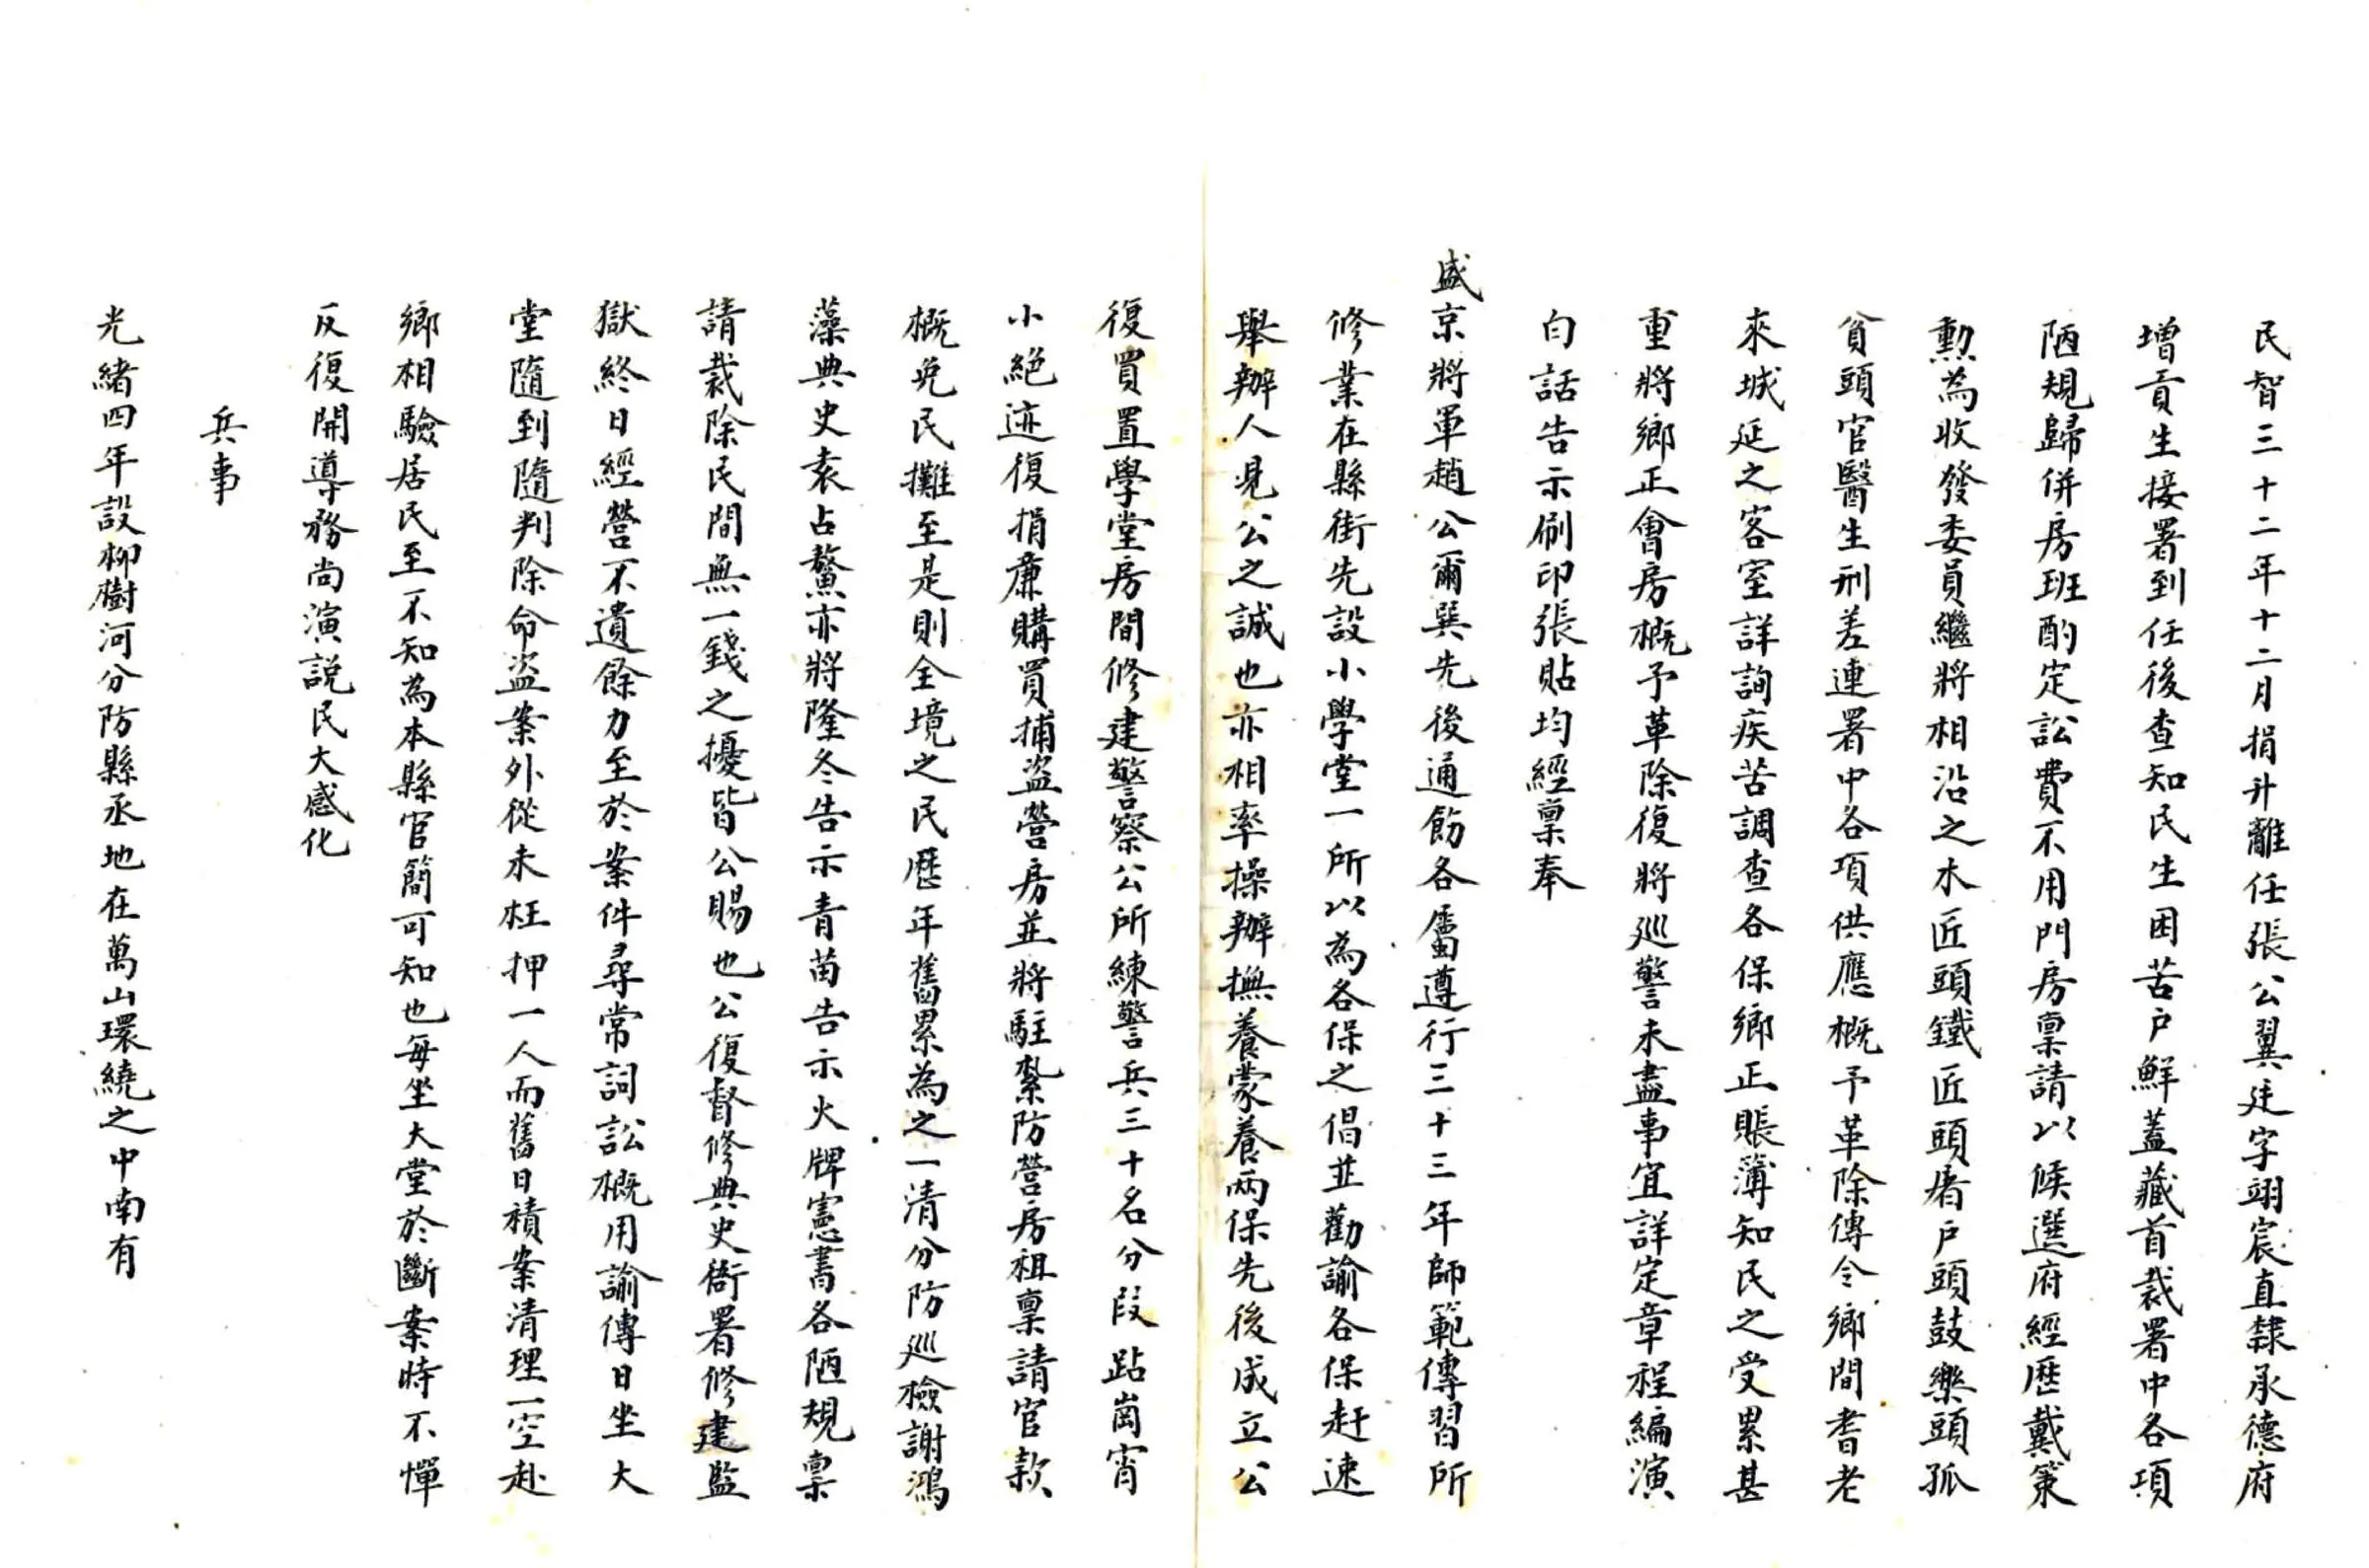 民智三十二年十二月捐升離任張公翼廷字翊宸直隸承德府
增貢生接署到任後查知民生困苦户鮮蓋藏首裁署中各項
陋規歸併房班酌定訟費不用門房稟請以候選府經歷戴策
勳為收發委員繼將相沿之木匠頭鐵匠頭屠户頭鼓樂頭孤
貧頭官醫生刑差連署中各項供應概予革除傳令鄉間耆老
來城延之客室詳詢疾苦調查各保鄉正賬薄知民之受累甚
重將鄉正會房概予革除復將巡警未盡事宜詳定章程編演
白話告示刷印張貼均經稟奉
盛京將軍趙公爾巽先後通飭各屬遵行三十三年師範傳習所
修業在縣街先設小學堂一所以為各保之倡並勸諭各保赶速
舉辦人見公之誠也亦相率操辦撫養蒙養兩保先後成立公
復買置學堂房間修建警察公所練警兵三十名分段跕崗宵
小絕迹復捐廉購買捕盜營房並將駐紮防營房租稟請官款
概免民攤至是則全境之民歷年舊累為之一清分防巡檢謝鴻
藻典史袁占鰲亦將隆冬告示青苗告示火牌憲書各陋規稟
請裁除民間無一錢之擾皆公賜也公復督修典史衙署修建監
獄終日經營不遺餘力至於案件尋常詞訟概用諭傳日坐大
堂隨到隨判除命盜案外從未枉押一人而舊日積案清理一空赴
鄉相驗居民至不知為本縣官簡可知也每坐大堂於斷案時不憚
反復開導務尚演説民大感化
兵事
光緒四年設柳樹河分防縣丞地在萬山環繞之中南有